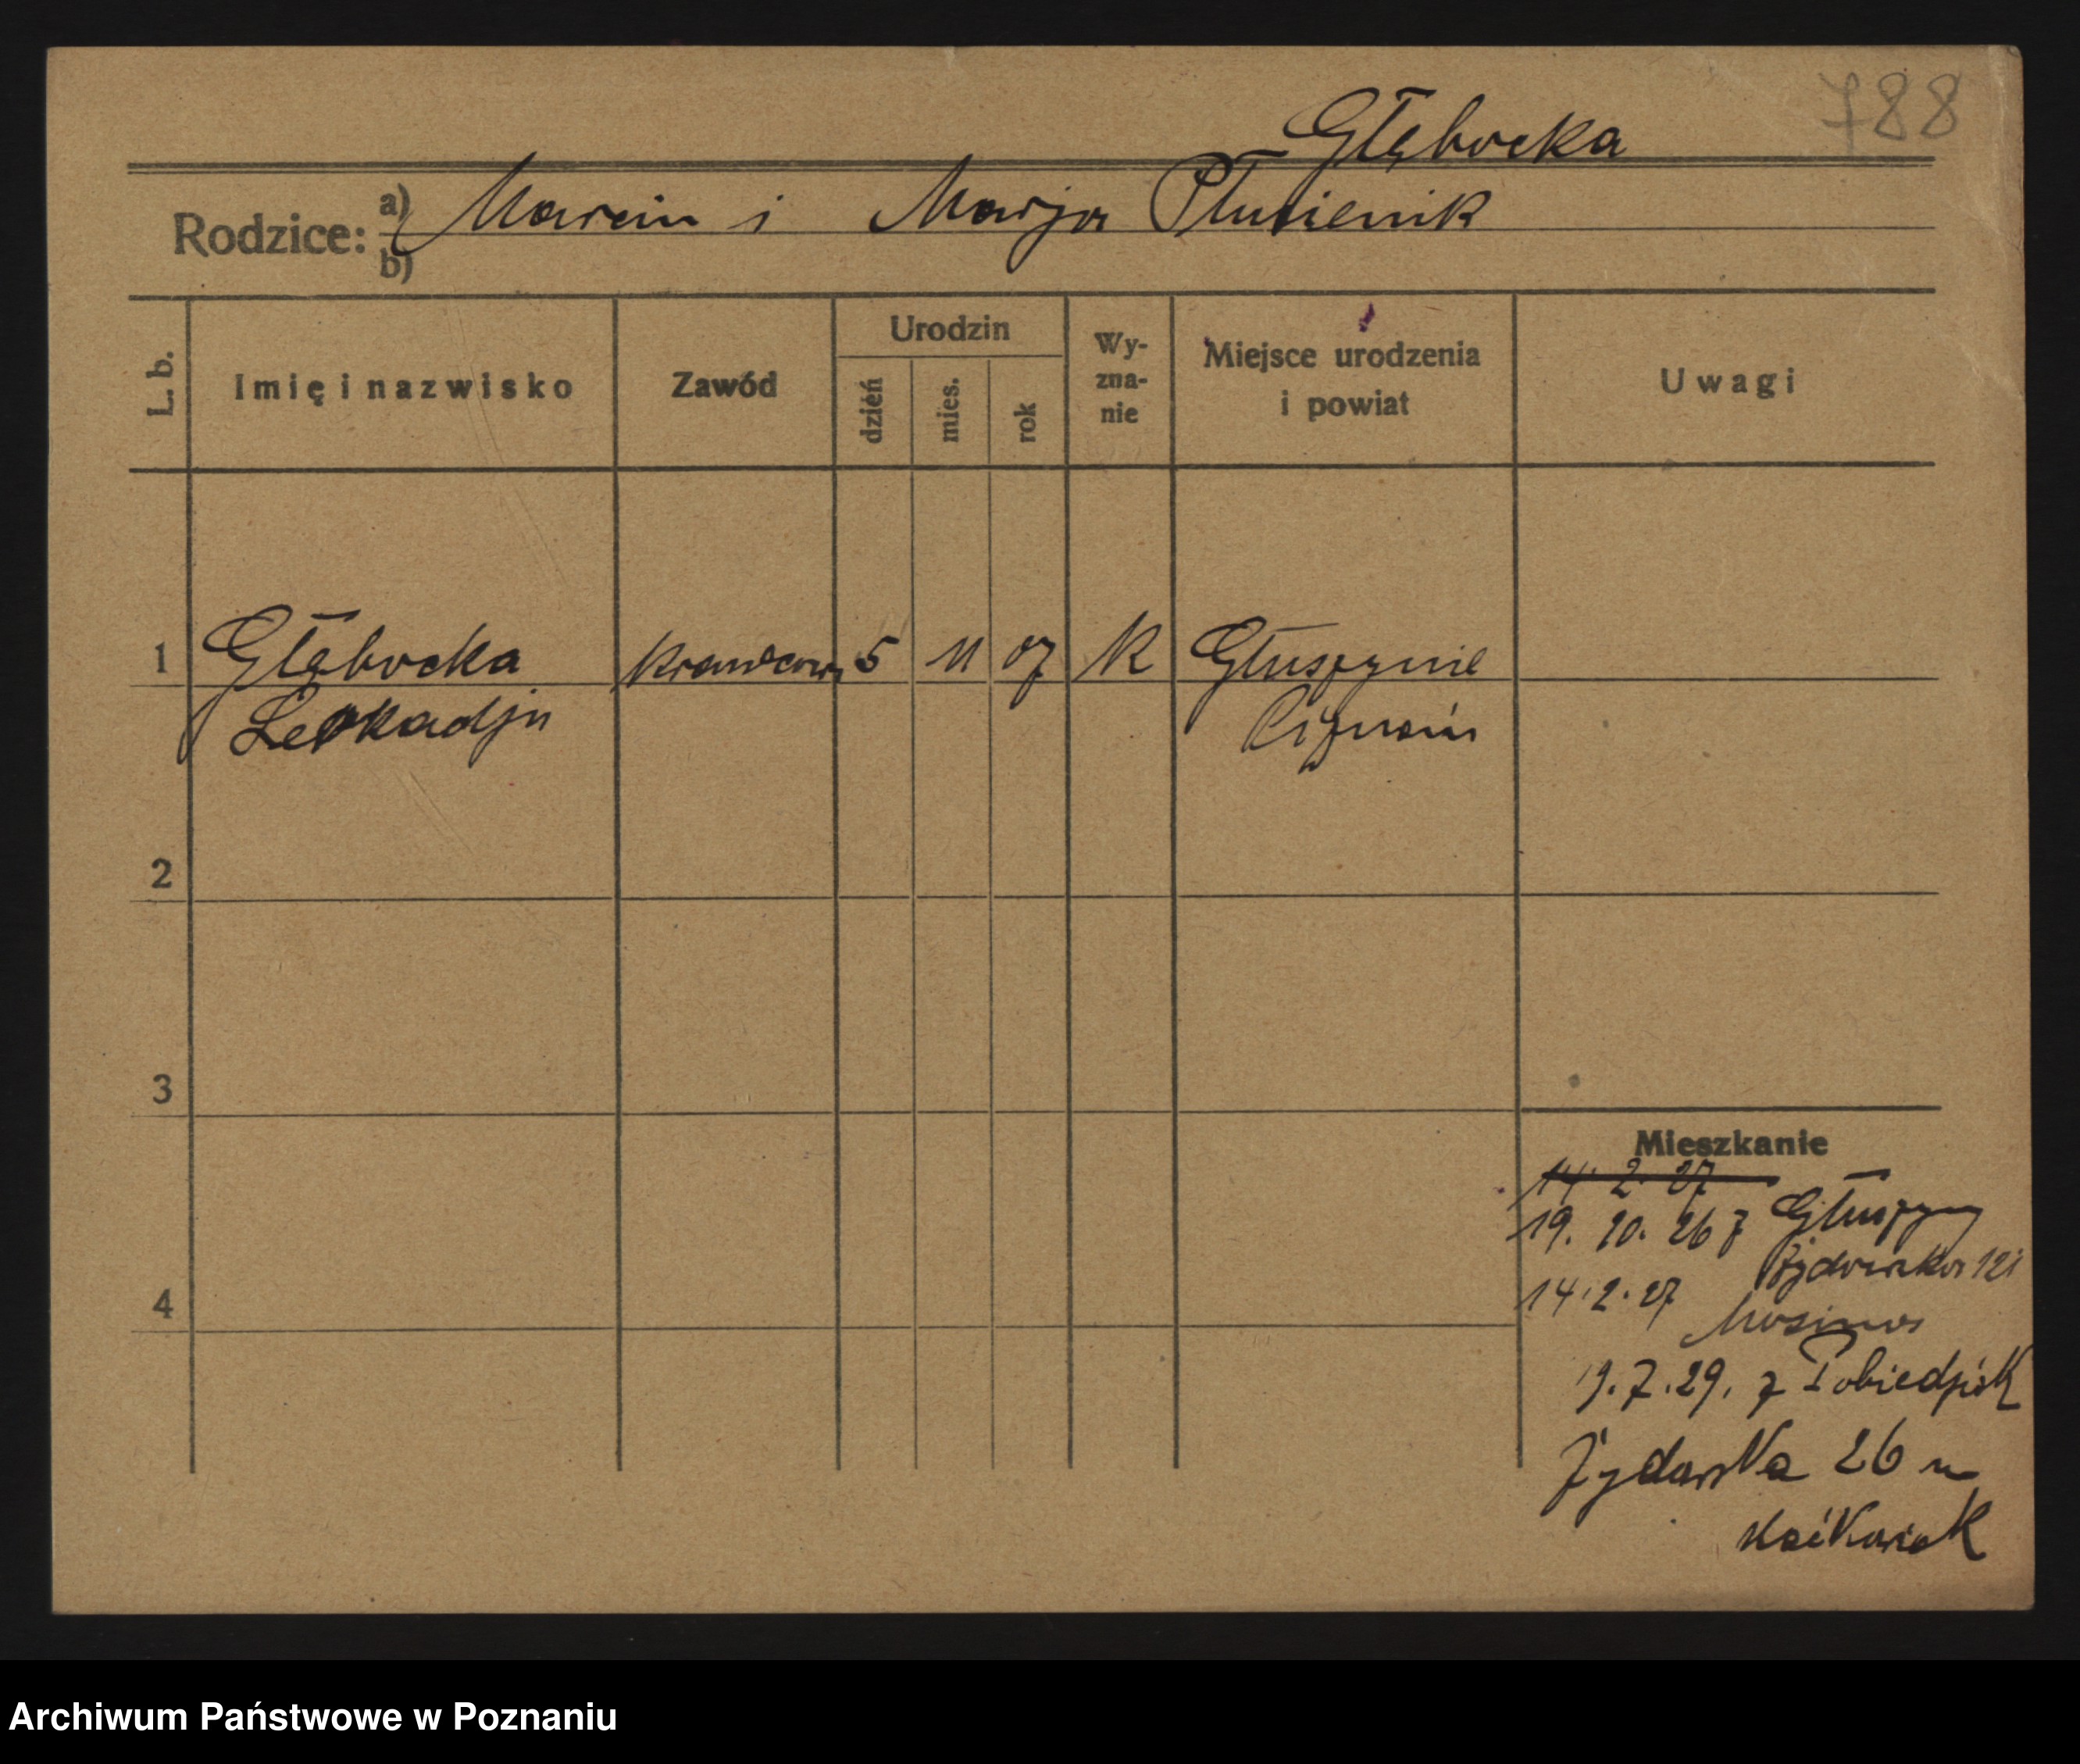 788
Głębocka
Rodzice: a) Marcin i Marja Płucienik
b)
L. b.
Imię i nazwisko
Zawód
Urodzin
dzień
mies.
rok
Wy-
zna-
nie
Miejsce urodzenia
i powiat
Uwagi
1 Głębocka krawcowa 5 11 07 K Głuszynie
Leokadja
2
3
4
Mieszkanie
14. 2. 27
19. 10. 26 z Głuszyny
14. 2. 27
Mosina
9. 7. 29. z Pobiedzisk
Żydowska 26 u
Archiwum Państwowe w Poznaniu